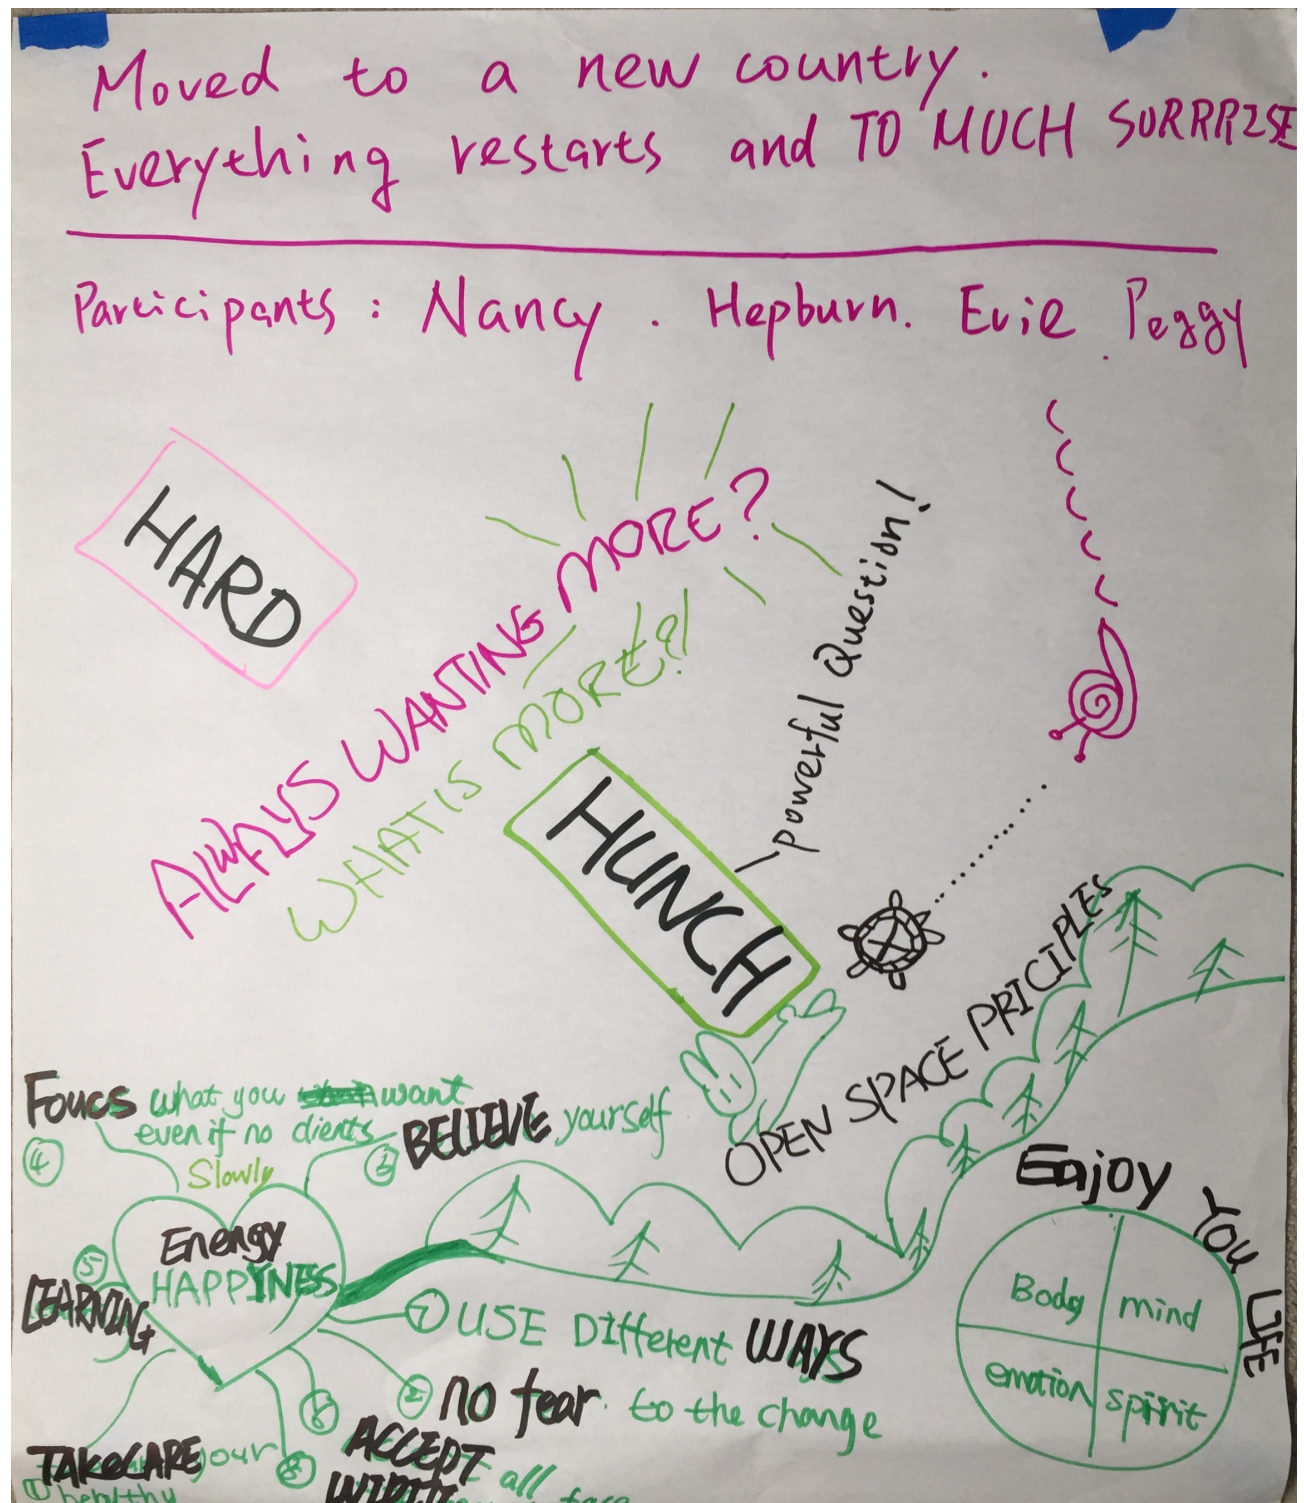 Moved to a new country.
Everything restarts and TO MUCH SURRPISE
Participants : Nancy . Hepburn. Evie . Peggy
HARD
ALWAYS WANTING MORE?
WHAT IS MORE?!
HUNCH
powerful Question!
OPEN SPACE PRICIPLES
Foucs what you want
even if no clients
④
Slowly
③ BELIEVE yourself
Energy
HAPPYNESS
⑤
LEARNING
⑦ USE Different WAYS
② no fear. to the change
⑥ ACCEPT
⑧ all
TAKECARE your
① healthy
Enjoy
YOU LIFE
Body
mind
emotion
spirit